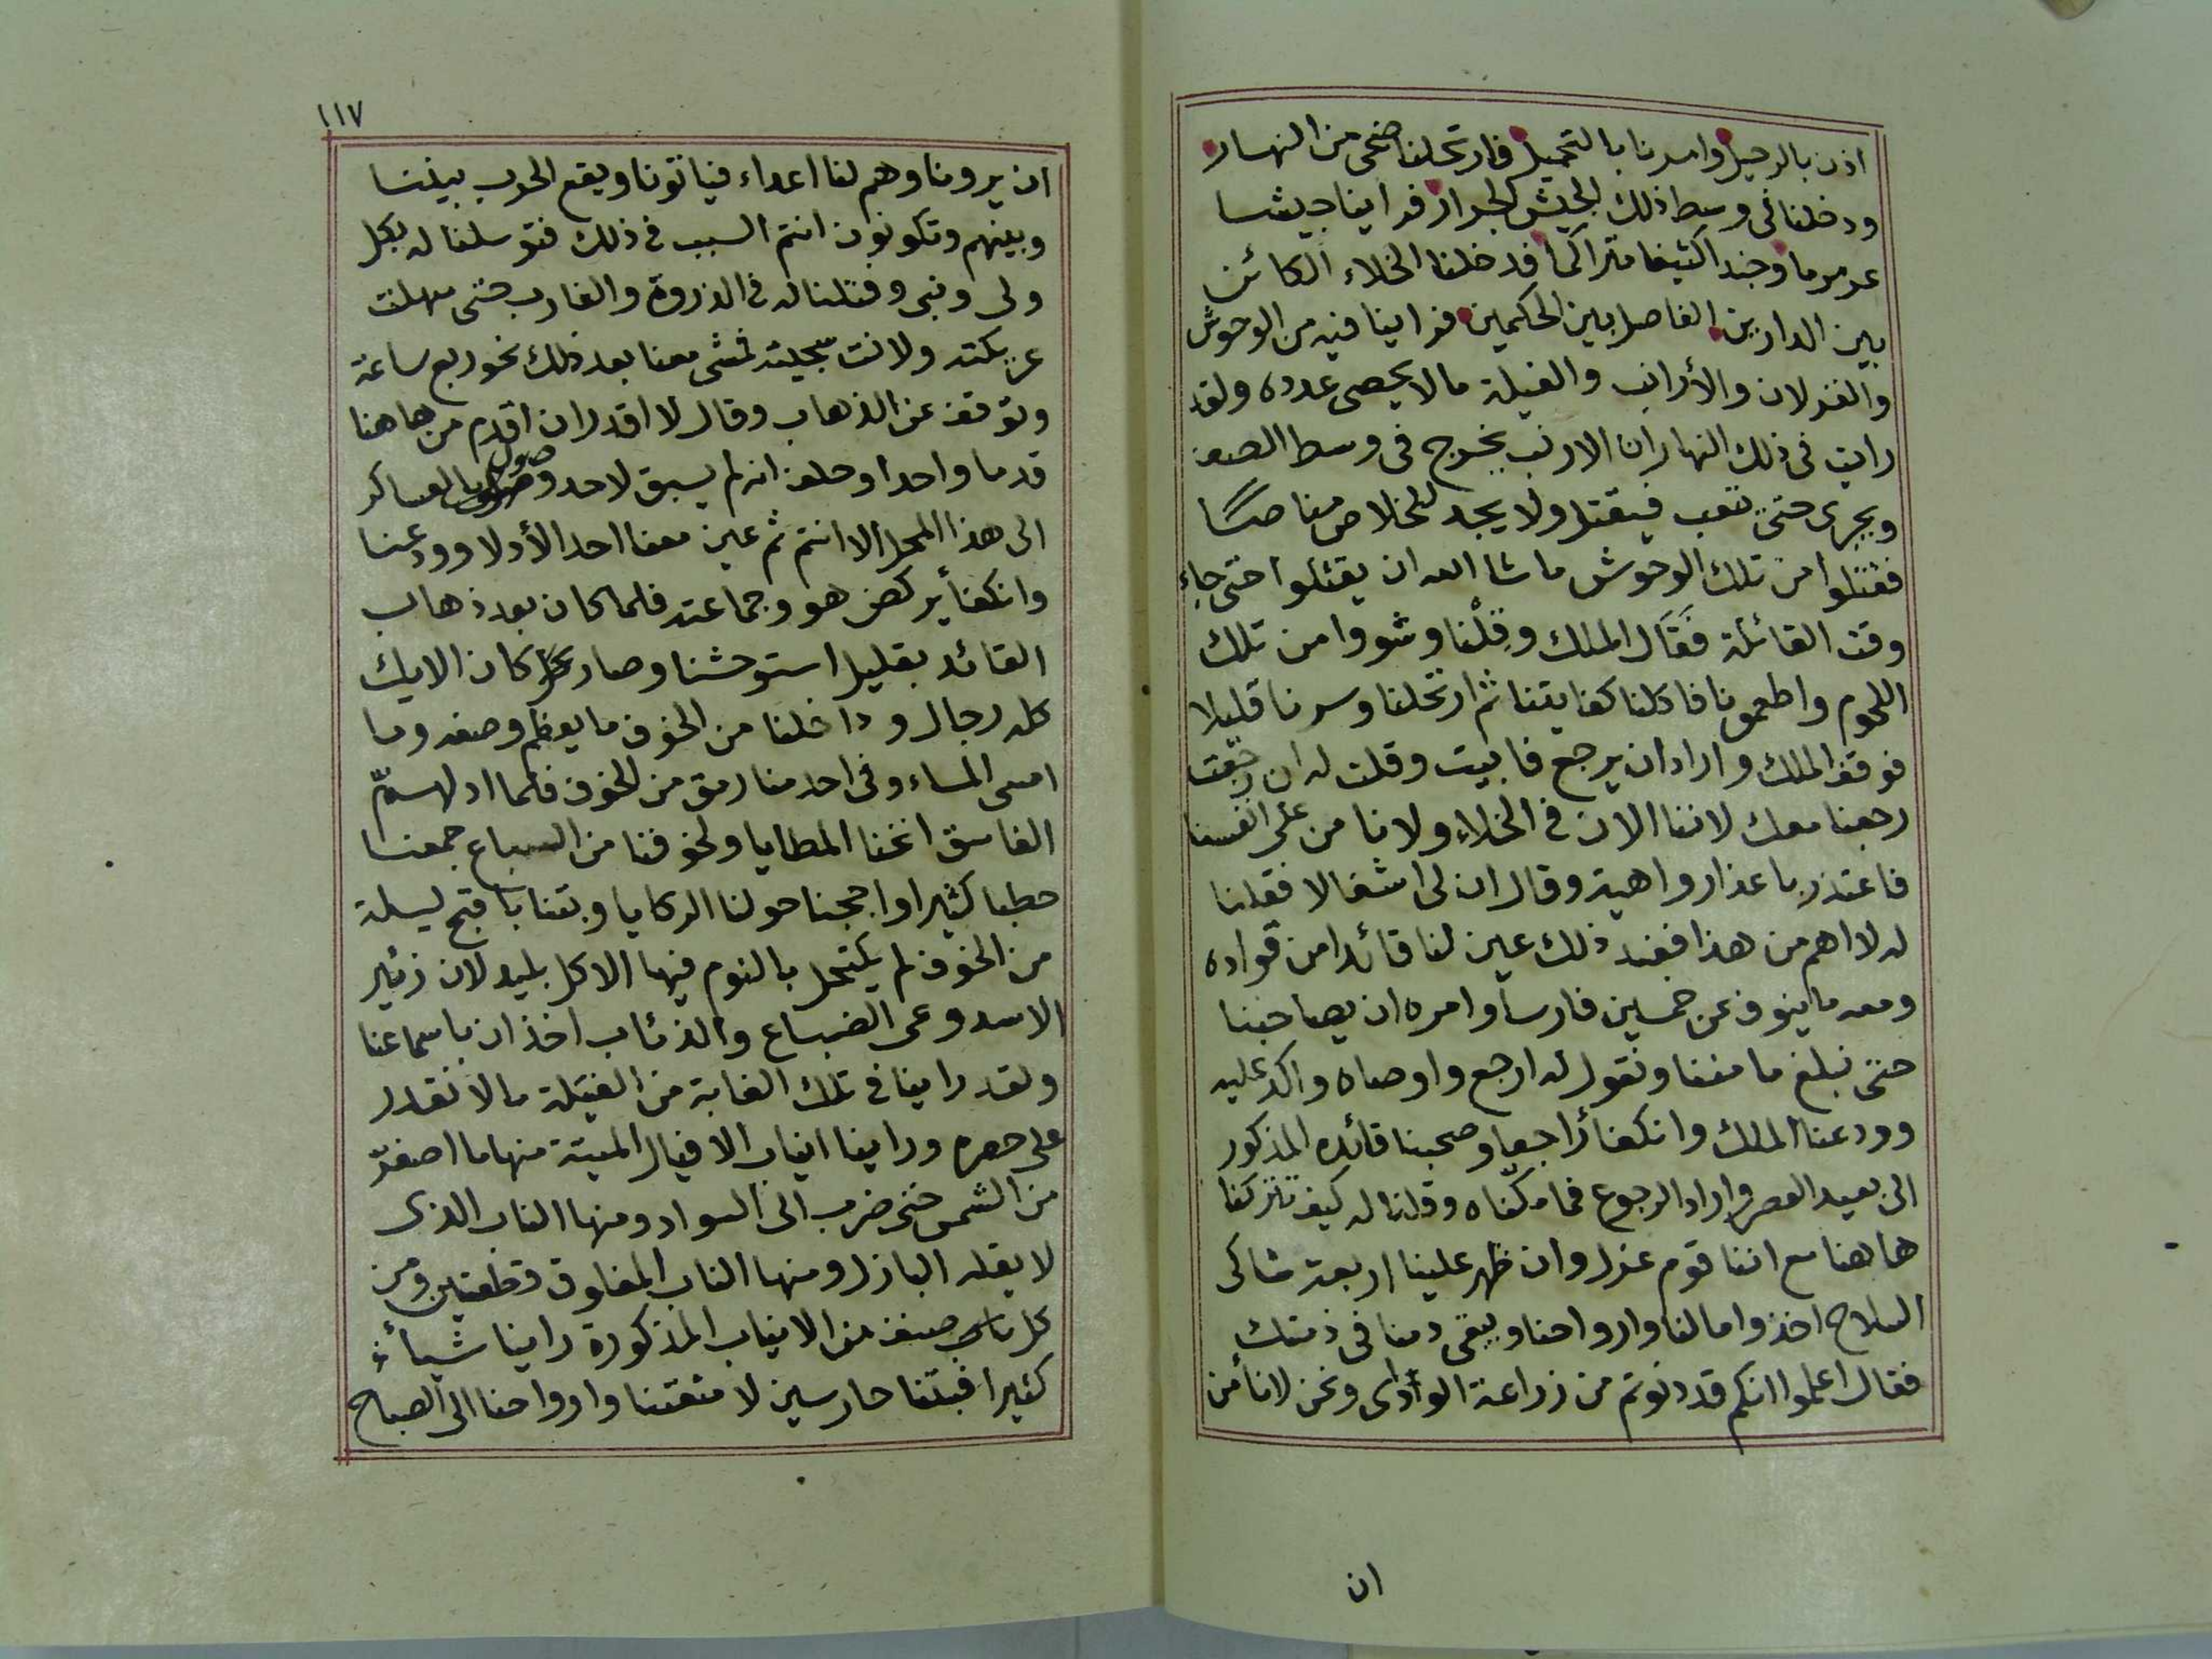 اذن بالرحيل وامرنا بالتحميل فارتحلنا ضحى من النهار
ودخلنا فى وسط ذلك الجيش الجرار فراينا جيشا
عرمرما وجندا كثيفا متراكما فدخلنا الخلاء الكائن
بين الدارين الفاصل بين الحكمين فراينا فيه من الوحوش
والغزلان والأرانب والفيلة مالا يحصى عدده ولقد
رايت فى ذلك النهار ان الارنب يخرج فى وسط الصف
ويجرى حتى تعب فيقتل ولا يجد للخلاص مناصا
فقتلوا من تلك الوحوش ما شا الله ان يقتلوا حتى جاء
وقت القائلة فقال الملك وقلنا وشووا من تلك
اللحوم واطعمونا فاكلنا كفايتنا ثم ارتحلنا وسرنا قليلا
فوقف الملك واراد ان يرجع فابيت وقلت له ان رجعت
رجعنا معك لاننا الان فى الخلاء ولا نامن على انفسنا
فاعتذر باعذار واهية وقال ان لى اشغالا فقلنا
له لا اهم من هذا فعند ذلك عين لنا قائدا من قواده
ومعه ما ينوف عن خمسين فارسا وامره ان يصاحبنا
حتى نبلغ مامننا ونقول له ارجع واوصاه واكد عليه
وودعنا الملك وانكفأ راجعا وصحبنا قائده المذكور
الى بعيد العصر واراد الرجوع فما مكناه وقلنا له كيف تتركنا
هاهنا مع اننا قوم عزل وان ظهر علينا اربعة شاكى
السلاح اخذوا اموالنا وارواحنا ويبقى دمنا فى ذمتك
فقال اعلموا انكم قد دنوتم من زراعة الوادى ونحن لا نأمن
ان
١١٧
ان يرونا وهم لنا اعداء فياتونا ويقع الحرب بيننا
وبينهم وتكونون انتم السبب فى ذلك فتوسلنا له بكل
ولى ونبى وفتلنا له فى الذروة والغارب حتى سهلت
عريكته ولانت سجيته فمشى معنا بعد ذلك نحو ربع ساعة
وتوقف عن الذهاب وقال لا اقدر ان اقدم من هاهنا
قدما واحدا وحلف انه لم يسبق لاحد وصول بالعساكر
الى هذا المحل الا انتم ثم عين معنا احد الأدلا وودعنا
وانكفأ يركض هو وجماعته فلما كان بعد ذهاب
القائد بقليل استوحشنا وصار كان الايك
كله رجال وداخلنا من الخوف ما يعظم وصفه وما
امسى المساء وفى احد منا رمق من الخوف فلما ادلهمّ
الغاسق انخنا المطايا ولخوفنا من السباع جمعنا
حطبا كثيرا واججنا حولنا الركايا وبتنا باقبح ليلة
من الخوف لم يكتحل بالنوم فيها الا كل بليد لان زئير
الاسد وعى الضباع والذئاب اخذ ان باسماعنا
ولقد راينا فى تلك الغابة من الفيلة ما لا نقدر
على حصره وراينا انياب الافيال الميتة منها ما اصفرّ
من الشمس حتى ضرب الى السواد ومنها الناب الذى
لا يقله البازل ومنها الناب المفلوق قطعتين ومن
كل صنف من الانياب المذكورة راينا شيأ
كثيرا فبتنا حارسين لامتعتنا وارواحنا الى الصباح